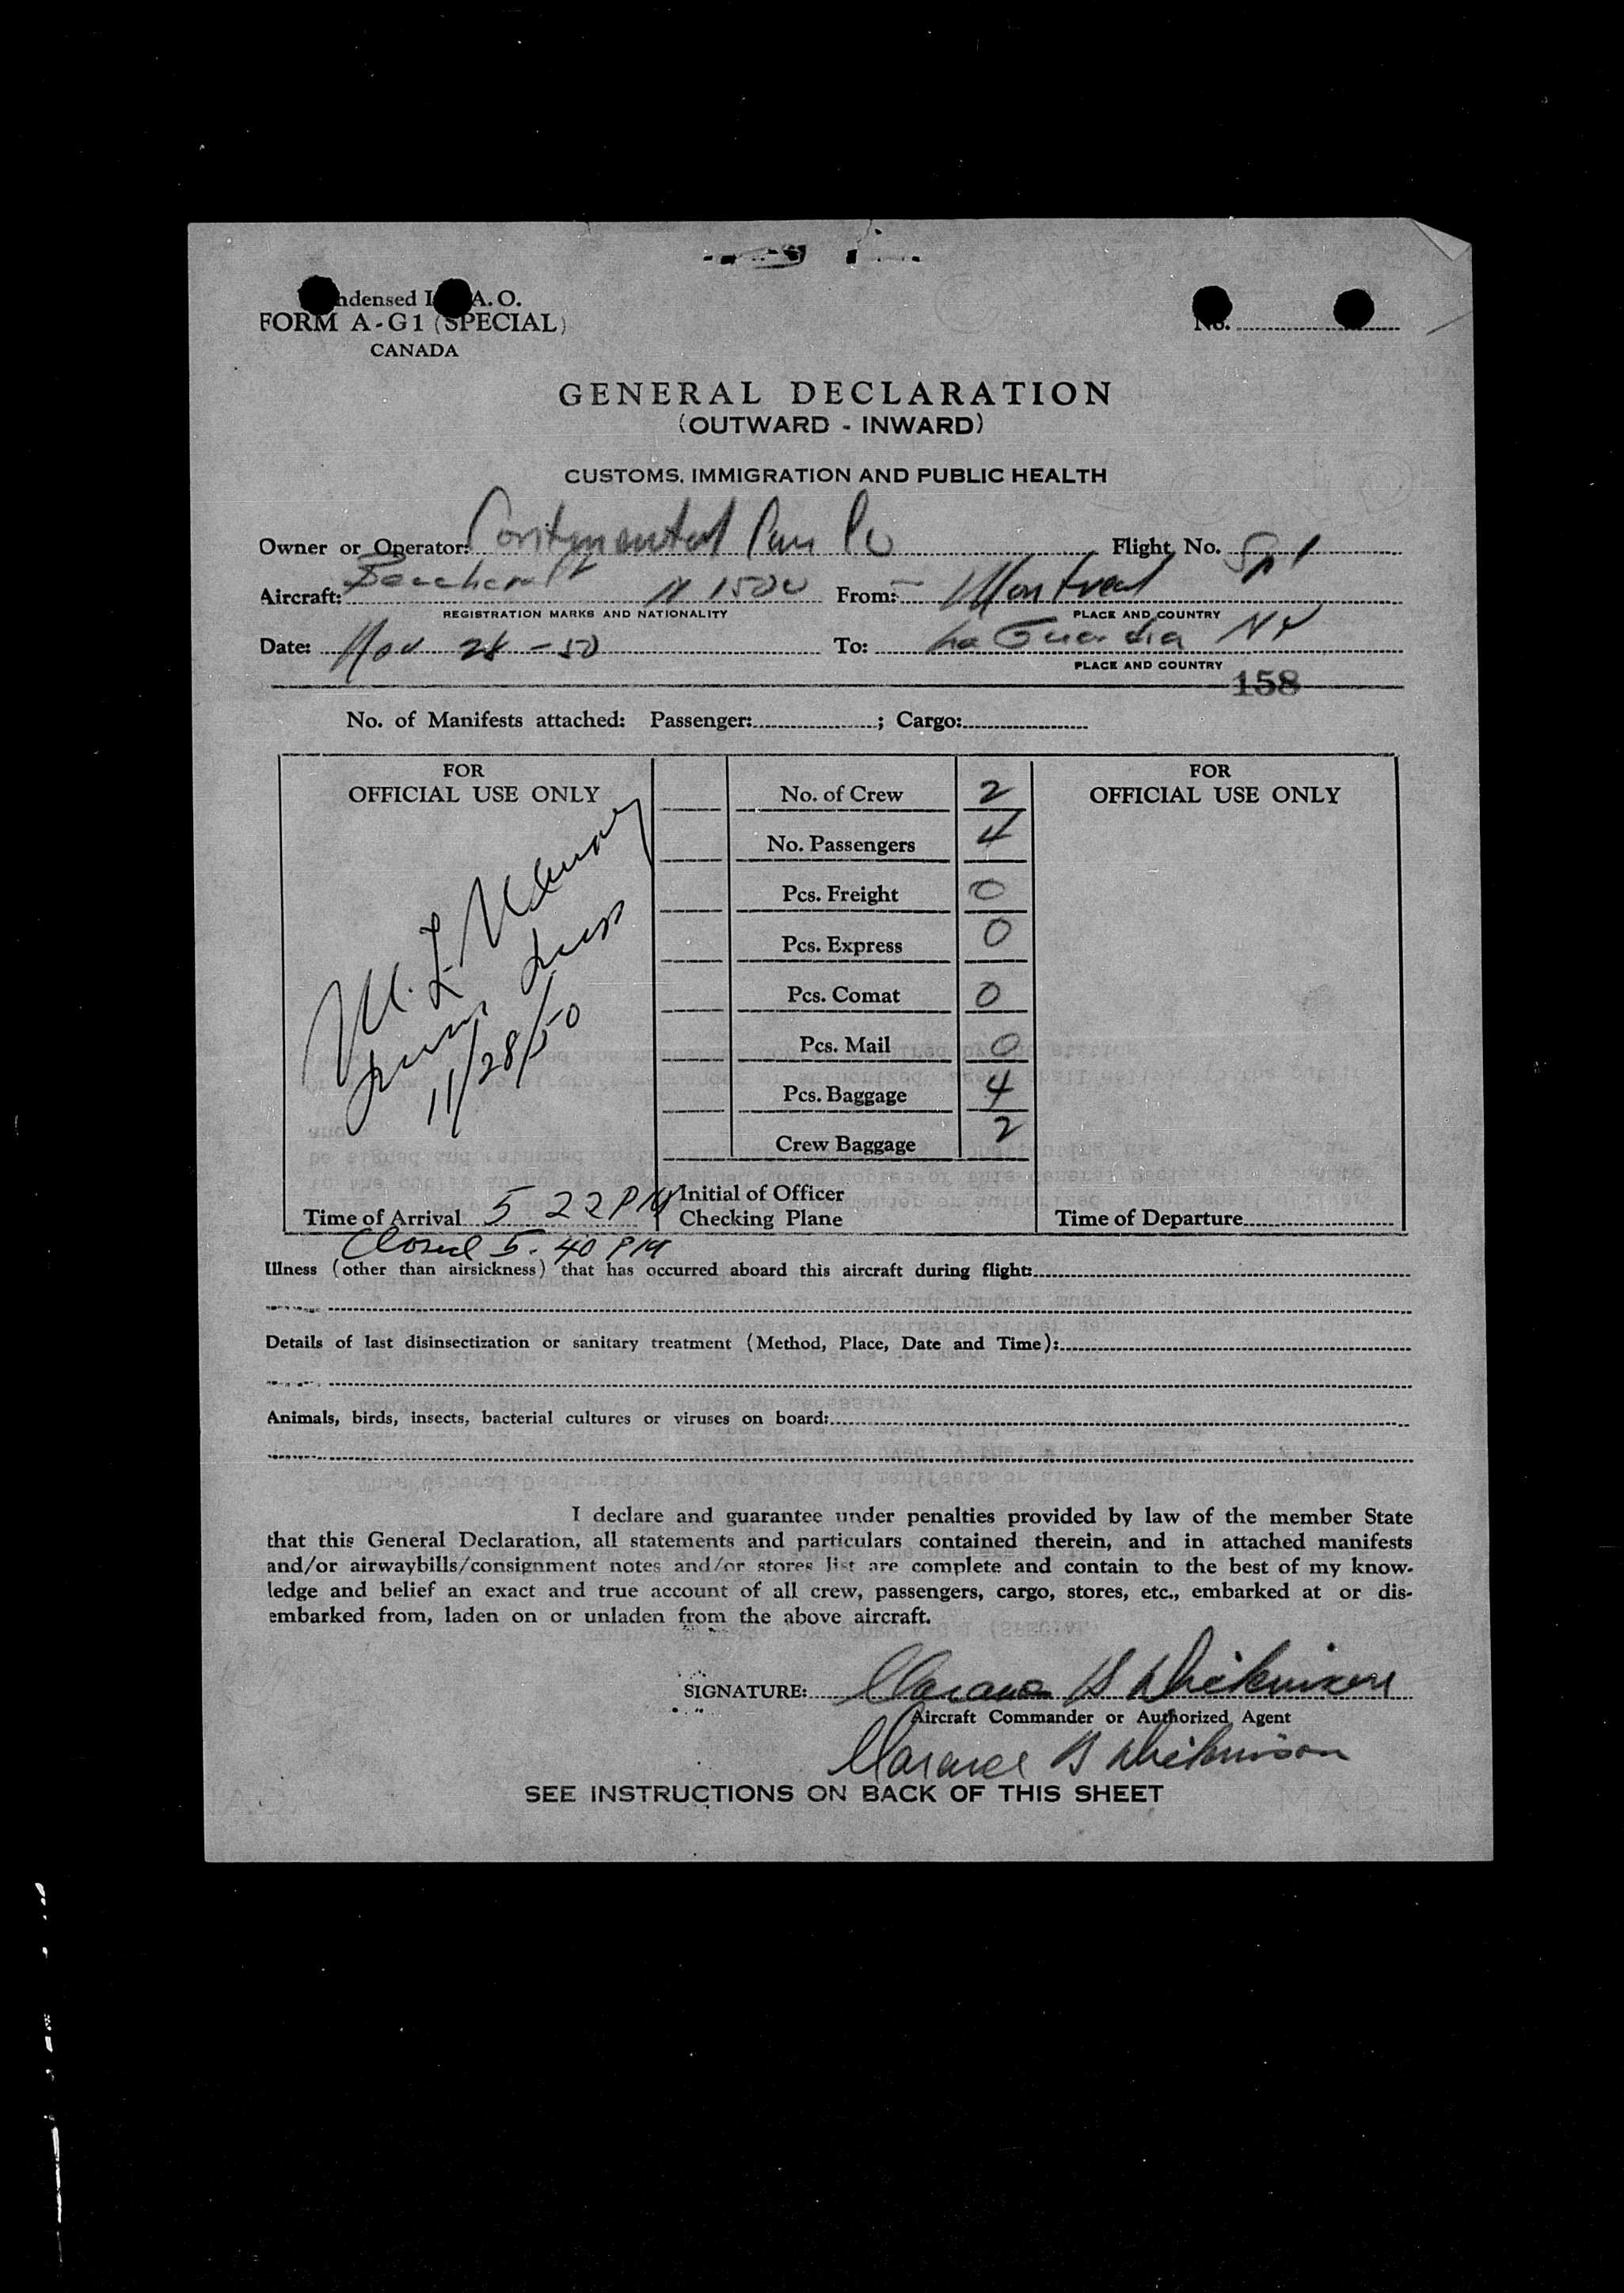 ndensed I A. O.
FORM A-G1 (SPECIAL)
CANADA
No.
GENERAL DECLARATION
(OUTWARD - INWARD)
CUSTOMS, IMMIGRATION AND PUBLIC HEALTH
Owner or Operator: Continental Can Co Flight No. Spl
Aircraft: Beechcraft N 1500 From: Montreal
REGISTRATION MARKS AND NATIONALITY PLACE AND COUNTRY
Date: Nov 28 - 50 To: La Guardia NY
PLACE AND COUNTRY
158
No. of Manifests attached: Passenger: ; Cargo:
FOR
OFFICIAL USE ONLY
M. L.
Insp
11/28/50
Time of Arrival 5 22 PM
Closed 5. 40 PM
No. of Crew 2
No. Passengers 4
Pcs. Freight 0
Pcs. Express 0
Pcs. Comat 0
Pcs. Mail 0
Pcs. Baggage 4
Crew Baggage 2
Initial of Officer
Checking Plane
FOR
OFFICIAL USE ONLY
Time of Departure
Illness (other than airsickness) that has occurred aboard this aircraft during flight:
Details of last disinsectization or sanitary treatment (Method, Place, Date and Time):
Animals, birds, insects, bacterial cultures or viruses on board:
I declare and guarantee under penalties provided by law of the member State
that this General Declaration, all statements and particulars contained therein, and in attached manifests
and/or airwaybills/consignment notes and/or stores list are complete and contain to the best of my know-
ledge and belief an exact and true account of all crew, passengers, cargo, stores, etc., embarked at or dis-
embarked from, laden on or unladen from the above aircraft.
SIGNATURE: Clarence B Dickinson
Aircraft Commander or Authorized Agent
Clarence B Dickinson
SEE INSTRUCTIONS ON BACK OF THIS SHEET